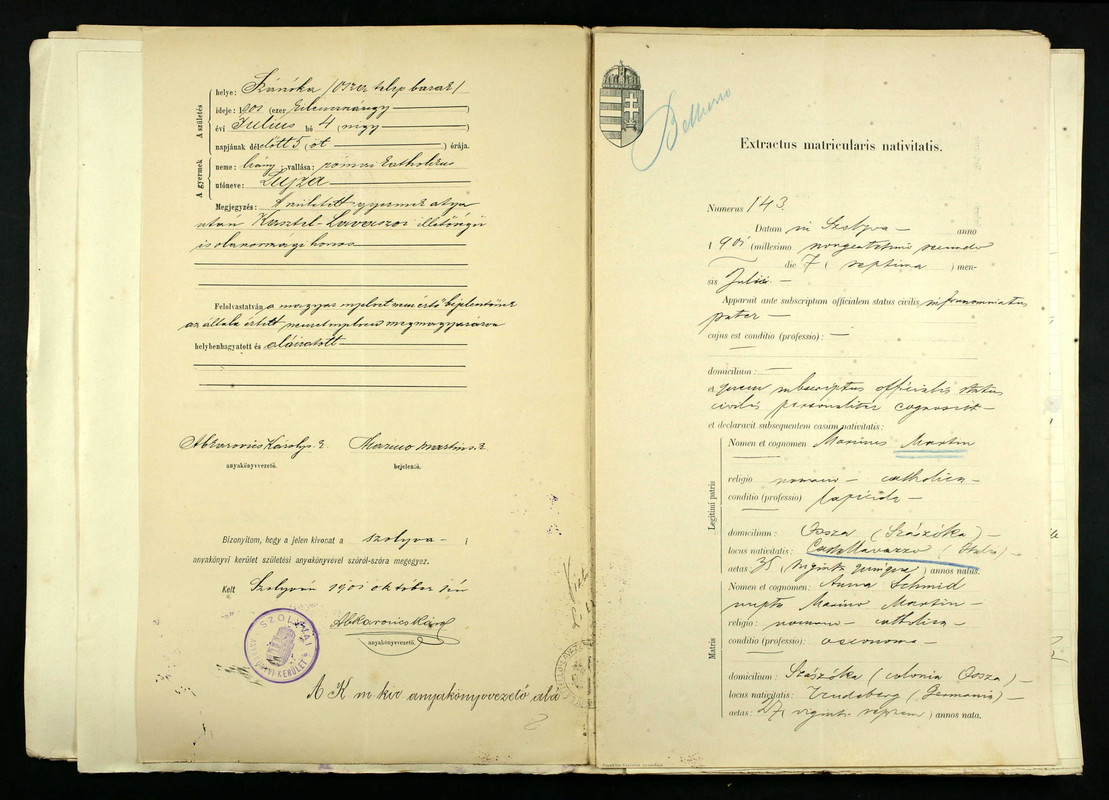 A születés
helye: Szászóka (Osza telep
ideje: 190 (ezer
évi Julius hó 4 (négy )
napjának délelőtt 5 (öt .) órája.
A gyermek
neme: leány; vallása: római katholikus
utóneve: Lujza
Megjegyzés: A született gyermek atya
után illetőségű
és olaszországi honos
Felolvastatván, a magyar nyelvet nem értő bejelentőnek
az általa értett német nyelven megmagyarázva
helybenhagyatott és aláiratott
Abkarovics Károly s. k. Marino Martin s. k.
anyakönyvvezető. bejelentő.
Bizonyítom, hogy a jelen kivonat a szolyva- i
anyakönyvi kerület születési anyakönyvével szóról-szóra megegyez.
Kelt Szolyván 190 október
Abkarovics Károly
anyakönyvvezető.
SZOLYVAI
ANYAKÖNYVI KERÜLET
A K m kir anyakönyvvezető alá
Belluno
Extractus matricularis nativitatis.
Numerus 143.
Datum in Szolyva – anno
190 (millesimo nongentesimo
die 7 ( septima ) men-
sis Julii. –
Apparuit ante subscriptum officialem status civilis infranominatus
pater –
cujus est conditio (professio): –
domicilium: –
et quem subscriptus officialis status
civilis personaliter cognoscit –
et declaravit subsequentem casum nativitatis:
Legitimi patris
Nomen et cognomen: Marinus Martin
religio romano – catholica –
conditio (professio) lapicida –
domicilium: Osza (Szászóka) –
locus nativitatis: Castellavazzo (Italia) –
aetas 35 ( ) annos natus.
Matris
Nomen et cognomen: Anna Schmid
nupta Marino Martin –
religio: romano – catholica –
conditio (professio): oeconoma –
domicilium: Szászóka (colonia Osza) –
locus nativitatis: (Germania) –
aetas: 27 ( viginti septem ) annos nata.